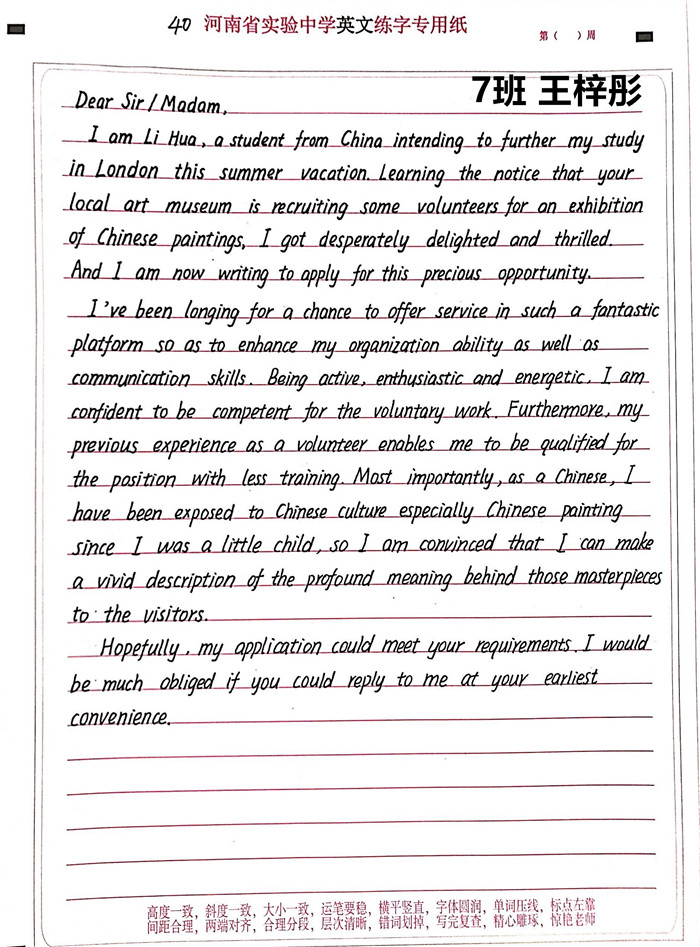 40 河南省实验中学英文练字专用纸
第（ ）周
7班 王梓彤
Dear Sir / Madam,
I am Li Hua, a student from China intending to further my study
in London this summer vacation. Learning the notice that your
local art museum is recruiting some volunteers for an exhibition
of Chinese paintings, I got desperately delighted and thrilled.
And I am now writing to apply for this precious opportunity.
I've been longing for a chance to offer service in such a fantastic
platform so as to enhance my organization ability as well as
communication skills. Being active, enthusiastic and energetic, I am
confident to be competent for the voluntary work. Furthermore, my
previous experience as a volunteer enables me to be qualified for
the position with less training. Most importantly, as a Chinese, I
have been exposed to Chinese culture especially Chinese painting
since I was a little child, so I am convinced that I can make
a vivid description of the profound meaning behind those masterpieces
to the visitors.
Hopefully, my application could meet your requirements. I would
be much obliged if you could reply to me at your earliest
convenience.
高度一致，斜度一致，大小一致，运笔要稳，横平竖直，字体圆润，单词压线，标点左靠
间距合理，两端对齐，合理分段，层次清晰，错词划掉，写完复查，精心雕琢，惊艳老师